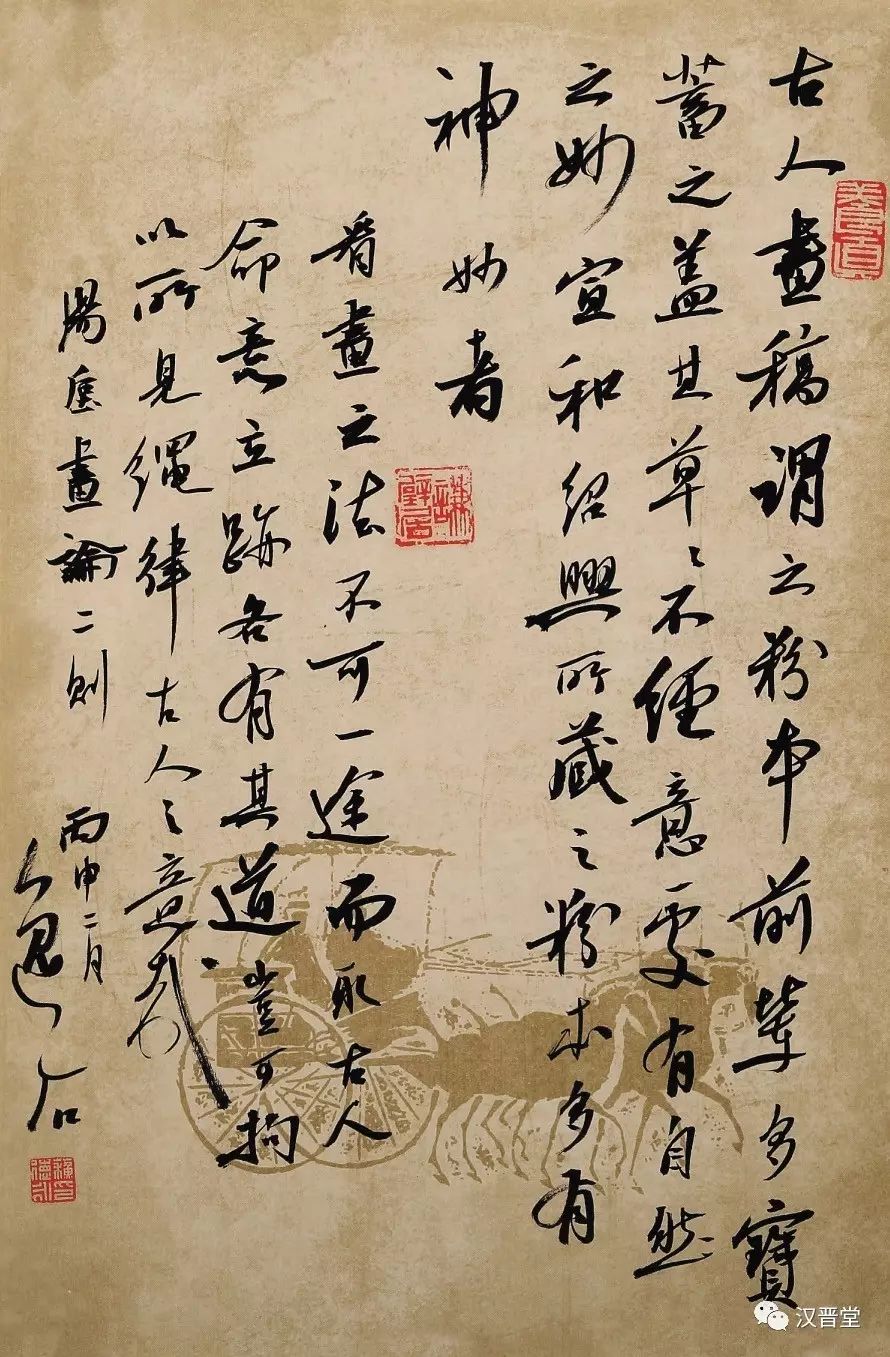 古人畫稿謂之粉本前輩多寶
蓄之蓋其草〻不經意處有自然
之妙宣和紹興所藏之粉本多有
神妙者
看畫之法不可一途而取古人
命意立跡各有其道豈可拘
以所見繩律古人之意哉
湯垕畫論二則
丙申二月
石
汉晋堂